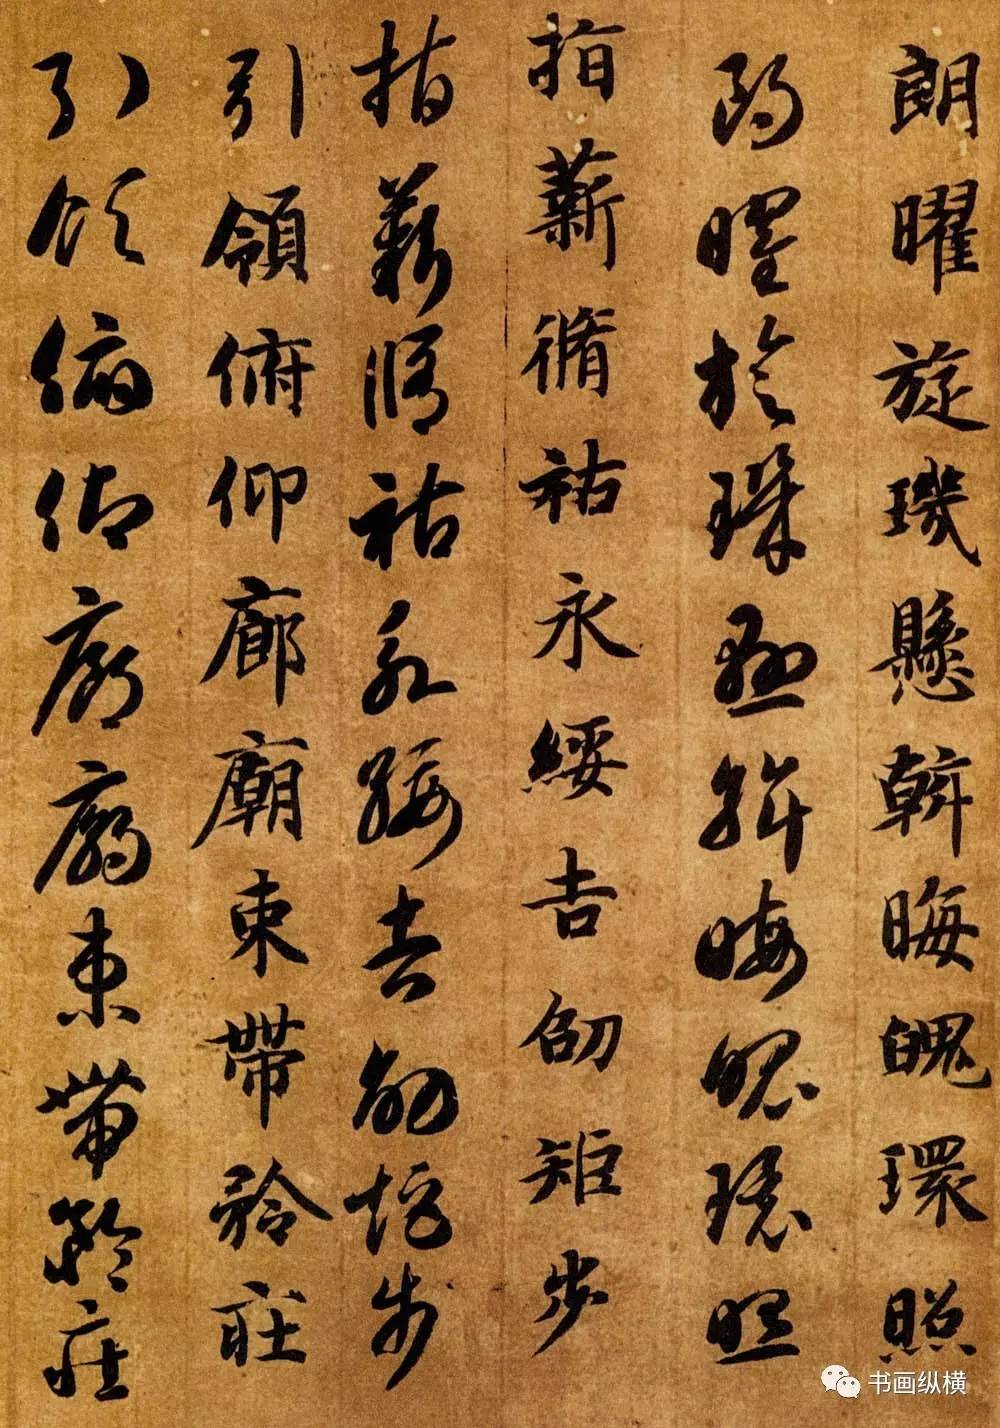 朗曜旋璣懸斡晦魄環照
朗曜旋璣懸斡晦魄環照
指薪脩祜永綏吉劭矩步
指薪脩祜永綏吉劭矩步
引領俯仰廊廟束帶矜莊
引領俯仰廊廟束帶矜莊
书画纵横